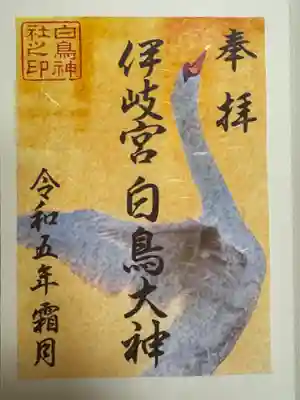 奉拝
伊岐宮 白鳥大神
令和五年霜月
白鳥神
社之印